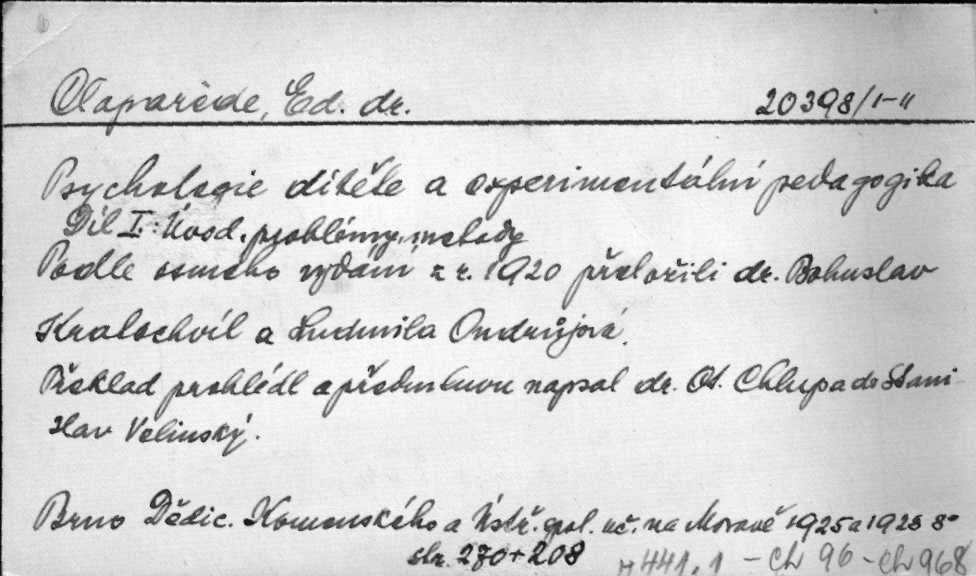 Claparède, Ed. dr. 20398/I-II
Psychologie dítěte a experimentální pedagogika
Díl I.: Úvod, problémy, metody
Podle osmého vydání z r. 1920 přeložili dr. Bohuslav
Kratochvíl a Ludmila Ondrůjová.
Překlad prohlédl a předmluvu napsal dr. Ot. Chlup a dr Stani-
slav Velinský.
Brno Dědic. Komenského a Ústř. spol. uč. na Moravě 1925 a 1928 8°
str. 270+208 441,1 - Ch 96 - Ch 968